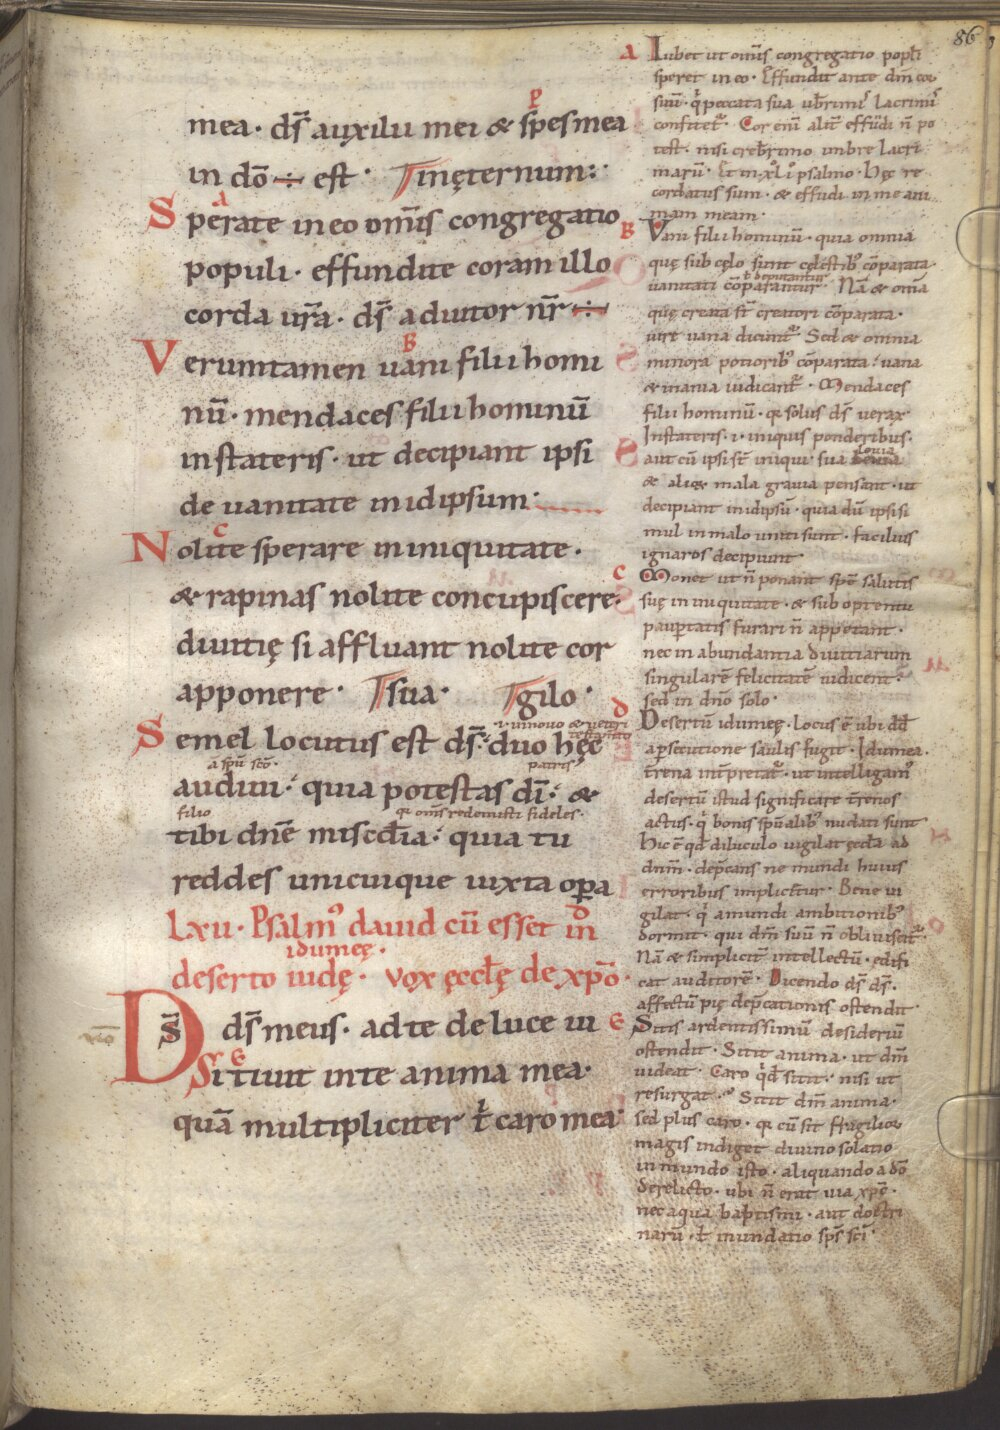 86
mea · dſ̄ auxilii mei & ſpes mea
in dō ÷ eſt · T inęternum :·
Sperate in eo om̄is congregatio
populi · effundite coram illo
corda ur̄a · dſ̄ adiutor nr̄ ÷
Verumtamen uani filii homi
nū · mendaces filii hominū
in ſtateris · ut decipiant ipsi
de uanitate in idipsum ·
Nolite sperare in iniquitate ·
& rapinas nolite concupiscere ·
diuitię si affluant nolite cor
apponere · T sua · T gilo ·
i · in nouo & ueteri
teſtamto
Semel locutus est dſ̄ : duo hęc
a spū scō · patris
audiui : quia potestas dī : &
filio q̄ om̄s redemisti fideles ·
tibi dn̄e misc̄dia : quia tu
reddes unicuique iuxta oꝑa
Lxii · Psalm᾽ dauid cū esset in
idumeę ·
deserto iudę · vox ęcclę de xp̄o ·
Dſ̄ dſ̄ meus · ad te de luce ui
Sitiuit in te anima mea ·
quā multipliciter ł caro mea
A Iubet ut om̄is congregatio popl̄i
speret in eo · Effundit ante dm̄ cor
suū · q̇ peccata sua ub̄rimis lacrimis
confitet᷑ · Cor enī alit̄ effūdi n̄ po
test · nisi creb̄rimo imbre lacri
marū · Et in xl i psalmo · Hęc re
cordatus sum · & effudi in me ani
mam meam ·
B Vani filii hominū · quia omnia
quę sub cęlo sunt cęlestib᾽ cōparata ·
ł deputantur
uanitati cōparantur · Nā & om̄ia
quę creata st̄ creatori cōparata ·
iure uana dicunt᷑ Sed & omnia
minora potiorib᾽ cōparata : uana
& inania iudicant᷑ · Mendaces
filii hominū · q̄ solus dſ̄ uerax
In stateris · i · iniquis ponderibus ·
leuia
aut cū ipsi st̄ iniqui sua
& alioȝ mala grauia pensant · ut
decipiant in idipsū · quia dū ipsi si
mul in malo uniti sunt · facilius
ignaros decipiunt
C Monet ut n̄ ponant spē salutis
suę in iniquitate · & sub optentu
paup̄tatis furari n̄ appetant ·
nec in abundantia diuitiarum
singularē felicitatē iudicent ·
sed in dn̄o solo ·
D Desertū idumeę · locus ē ubi dd̄
a p̄secutione saulis fugit · Idumea ·
t̄rena int̄pretat᷑ · ut intelligam᾽
desertū istud significare t̄renos
actus · q̇ bonis sp̄ualib᾽ nudati sunt
Hic ē qd̄ dilucułlo uigilat ęccla ad
dnm̄ · dep̄cans ne mundi huius
erroribus implicet̄ur · Bene ui
gilat · q̇ a mundi ambitionib᾽
dormit · qui dm̄ suū n̄ obliuiscit᷑
Nā & simplicit̄ intellectū · edifi
cat auditorē · Dicendo dſ̄ dſ̄ ·
affectū pię dep̄cationis ostendit
E Sitis ardentissimū desideriū
ostendit · Sitit anima · ut dm̄
uideat · Caro q̇d sitit · nisi ut
resurgat · Sitit dm̄ anima ·
sed plus caro · q̄ cū sit fragilior
magis indiget diuino solatio
in mundo isto · aliquando a dō
derelicto · ubi n̄ erat uia xp̄ē ·
nec aqua baptismi · aut doctri
narū · ł inundatio sp̄s sc̄i ·